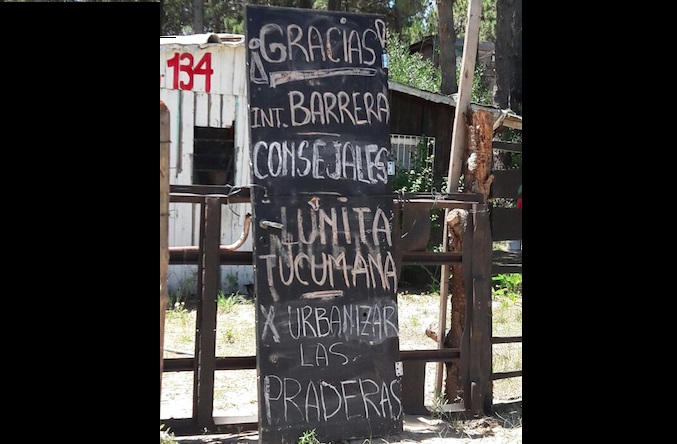 134
¡GRACIAS!
INT. BARRERA
CONSEJALES
LUNITA
TUCUMANA
X URBANIZAR
LAS
PRADERAS